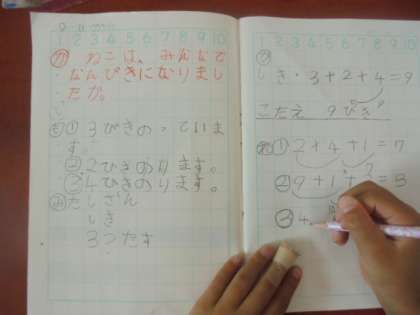 1 2 3 4 5 6 7 8 9 10
か ねこは、みんなで
なんびきになりまし
たか。
も ① 3びきのっていま
す。
② 2ひきのります。
③ 4ひきのります。
み たしざん
しき
3つたす
1 2 3 4 5 6 7 8 9 10
しき・3+2+4=9
こたえ 9ひき
れ ① 2+4+1=7
② 9+1+3=
③ 4